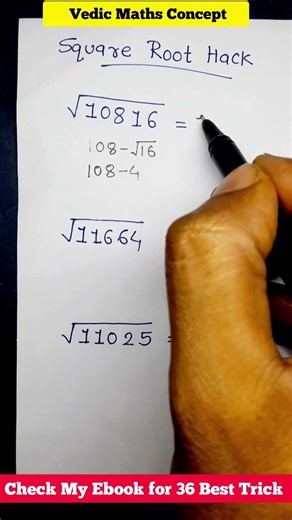 Vedic Maths Concept
Square Root Hack
√10816 =
108-√16
108-4
√11664
√11025 =
Check My Ebook for 36 Best Trick